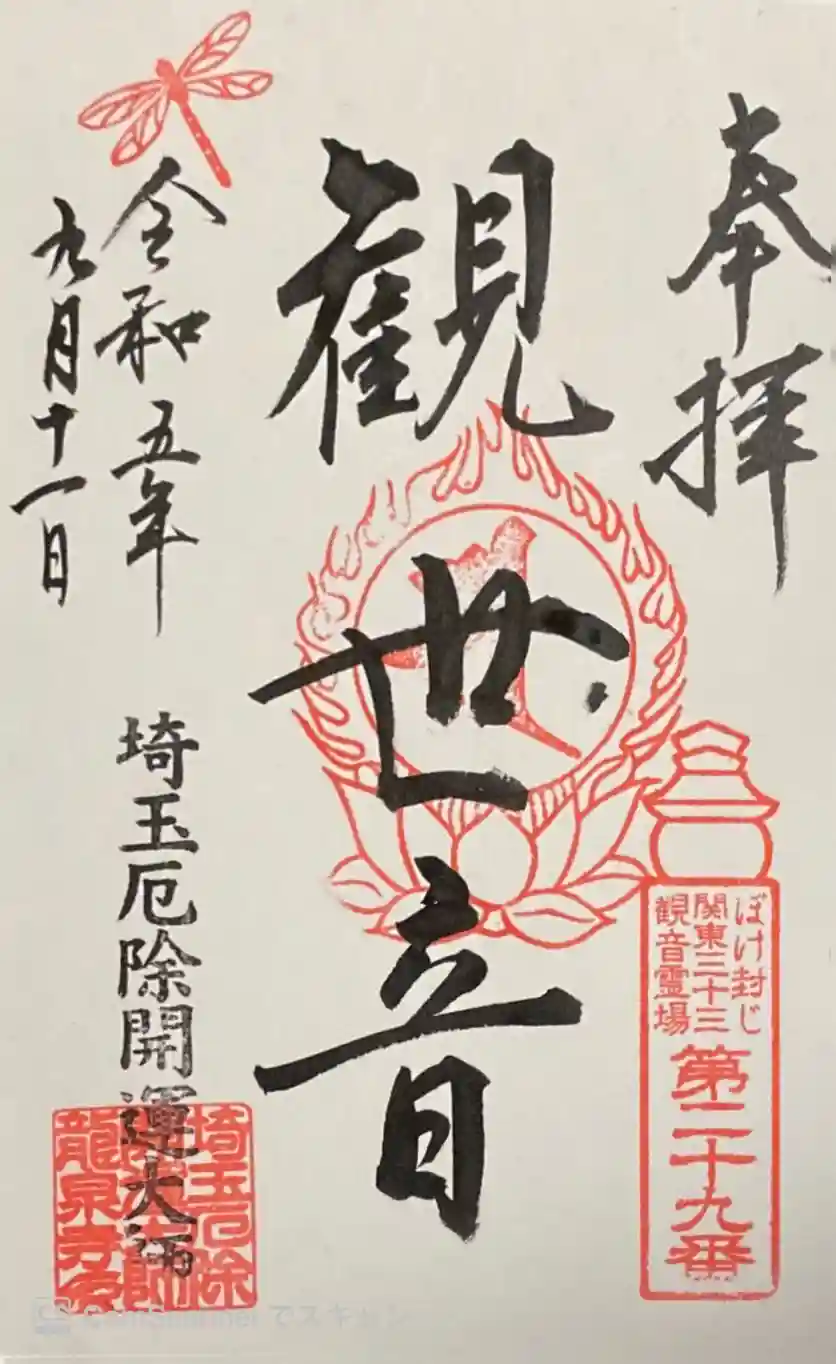 奉拝
ぼけ封じ
関東三十三
観音霊場
第二十九番
観世音
令和五年
九月十一日
埼玉厄除開運大師
埼玉厄除
開運大師
龍泉寺印
CamScanner でスキャン